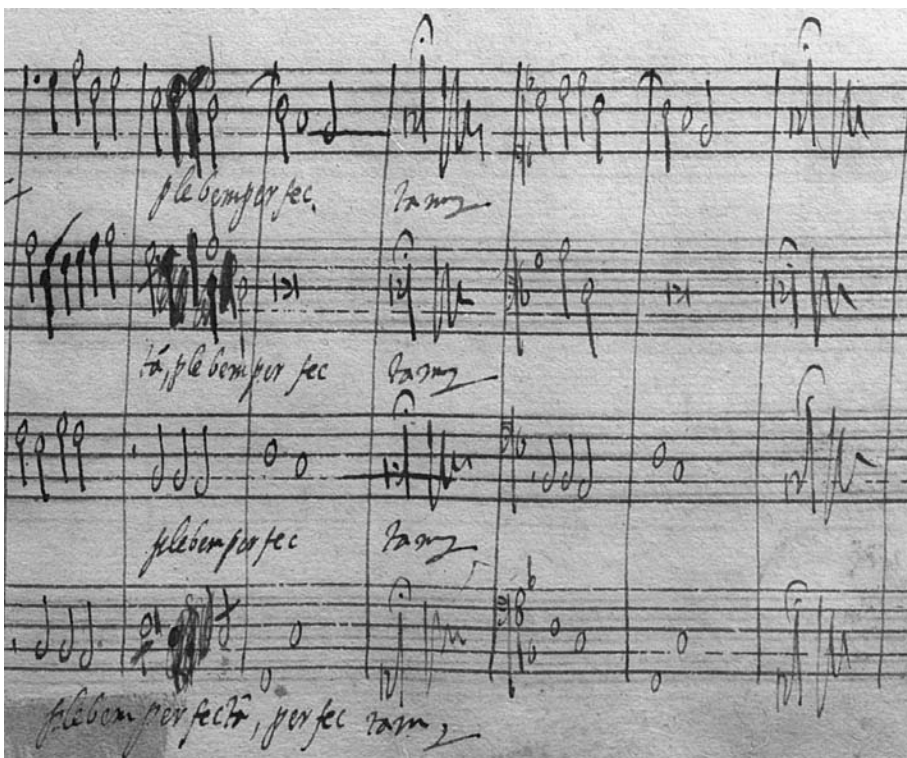 plebem perfec tam
tā, plebem perfec tam
plebem perfec tam
plebem perfectā, perfec tam